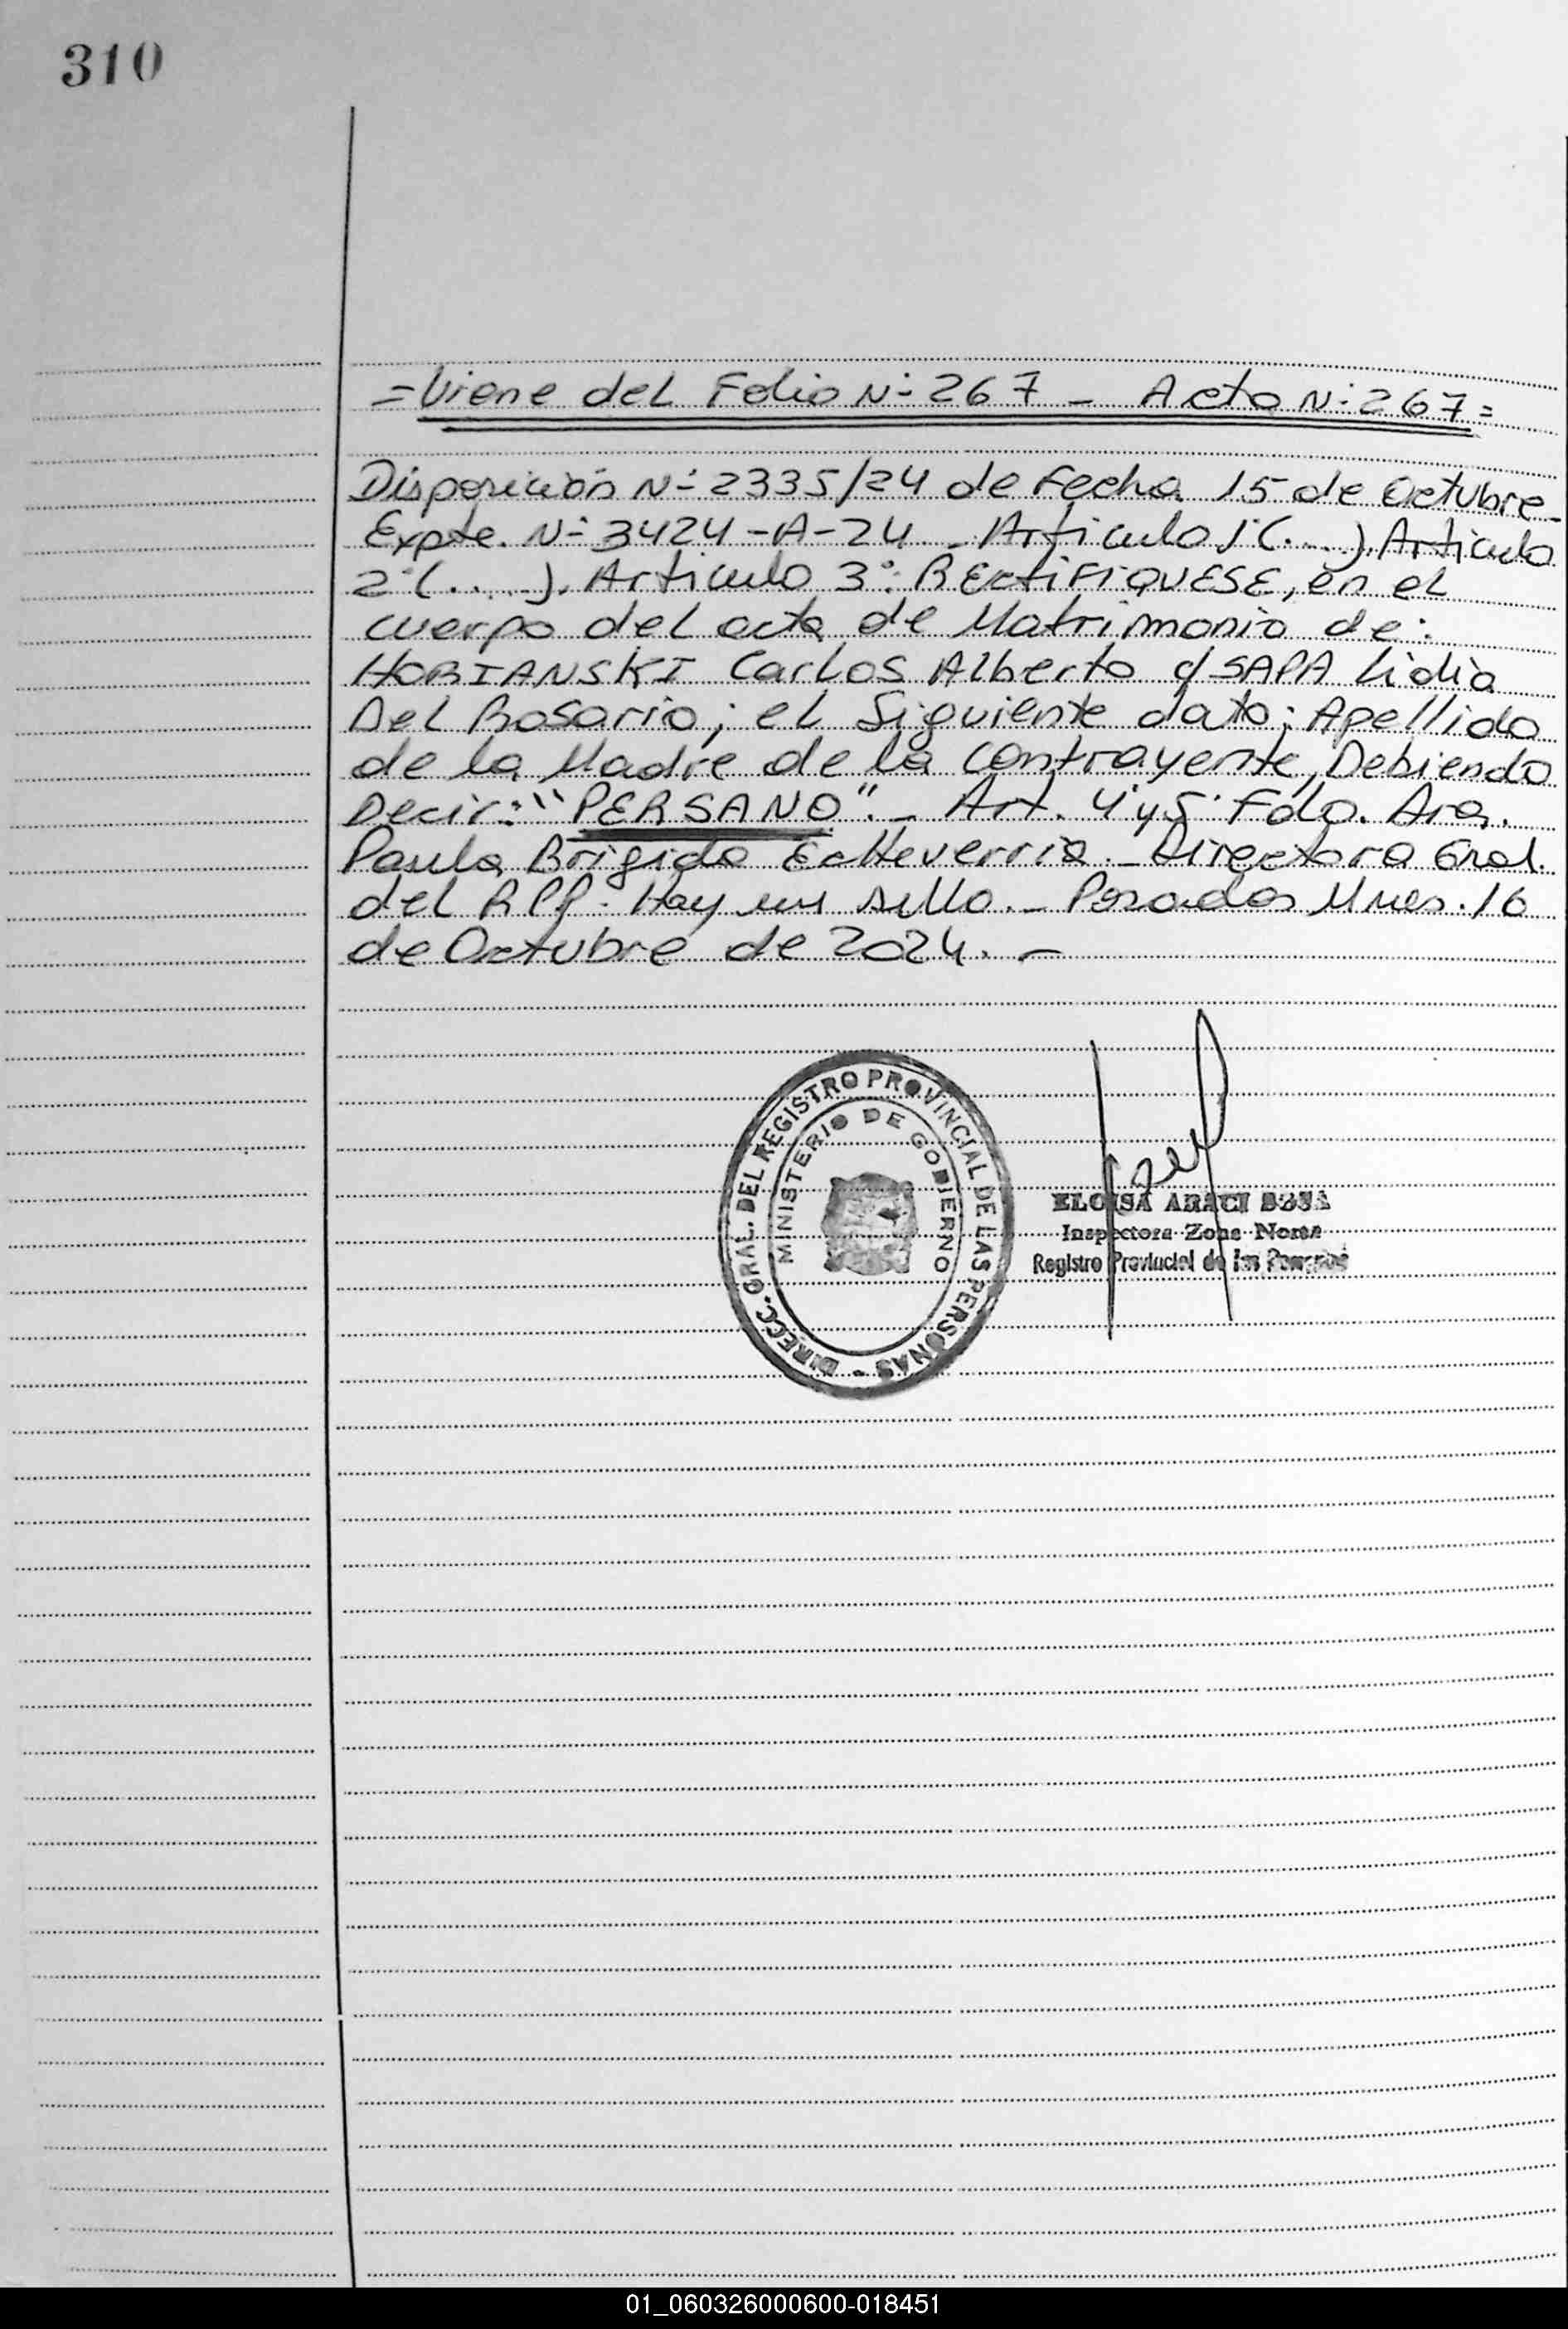 310
= Viene del Folio N° 267 - Acta N° 267 =
Disposición N° 2335/24 de Fecha 15 de Octubre -
Expte. N° 3424-A-24 - Articulo 1°(....). Articulo
2°(.....). Articulo 3°: RECtiFIQUESE, en el
cuerpo del acta de Matrimonio de:
HOBIANSKI Carlos Alberto c/ SAPA Lidia
Del Rosario; el Siguiente dato: Apellido
de la Madre de la contrayente, Debiendo
Decir: "PERSANO". - Art. 4° y 5° Fdo. Arq.
Paula Brigida Echeverria. - Directora Gral.
del RPP. Hay un sello. - Posadas Mnes. 16
de Octubre de 2024. -
DIRECC. GRAL. DEL REGISTRO PROVINCIAL DE LAS PERSONAS -
MINISTERIO DE GOBIERNO
ELOISA ARACI
Inspectora Zona Norte
Registro Provincial de las Personas
01_060326000600-018451